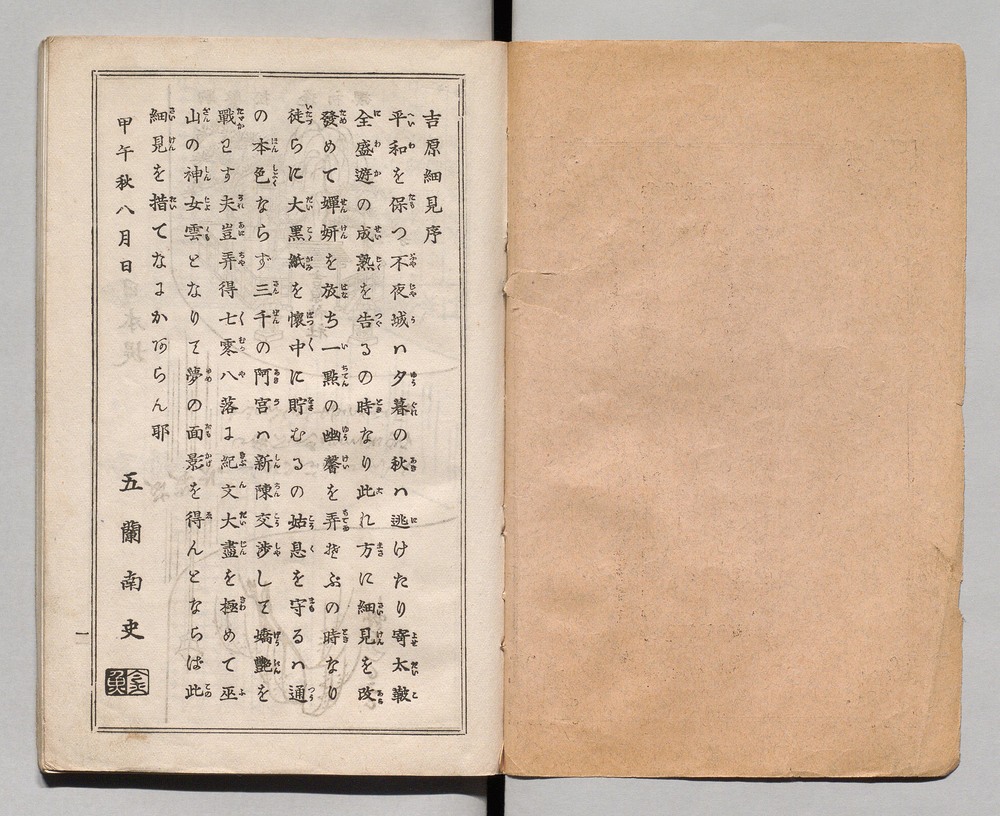 吉原細見序
平和を保つ不夜城ハ夕暮の秋ハ逃けたり寄太皷
全盛遊の成熟を告るの時なり此れ方に細見を改
發めて嬋妍を放ち一點の幽馨を弄そぶの時なり
徒らに大黑紙を懷中に貯むるの姑息を守るハ通
の本色ならず三千の阿宮ハ新陳交渉して嬌艷を
戰ワす夫豈弄得七零八落に紀文大盡を極めて巫
山の神女雲となりて夢の面影を得んとならば此
細見を措てなにかあらん耶
甲午秋八月日　五蘭南史
金魚
一